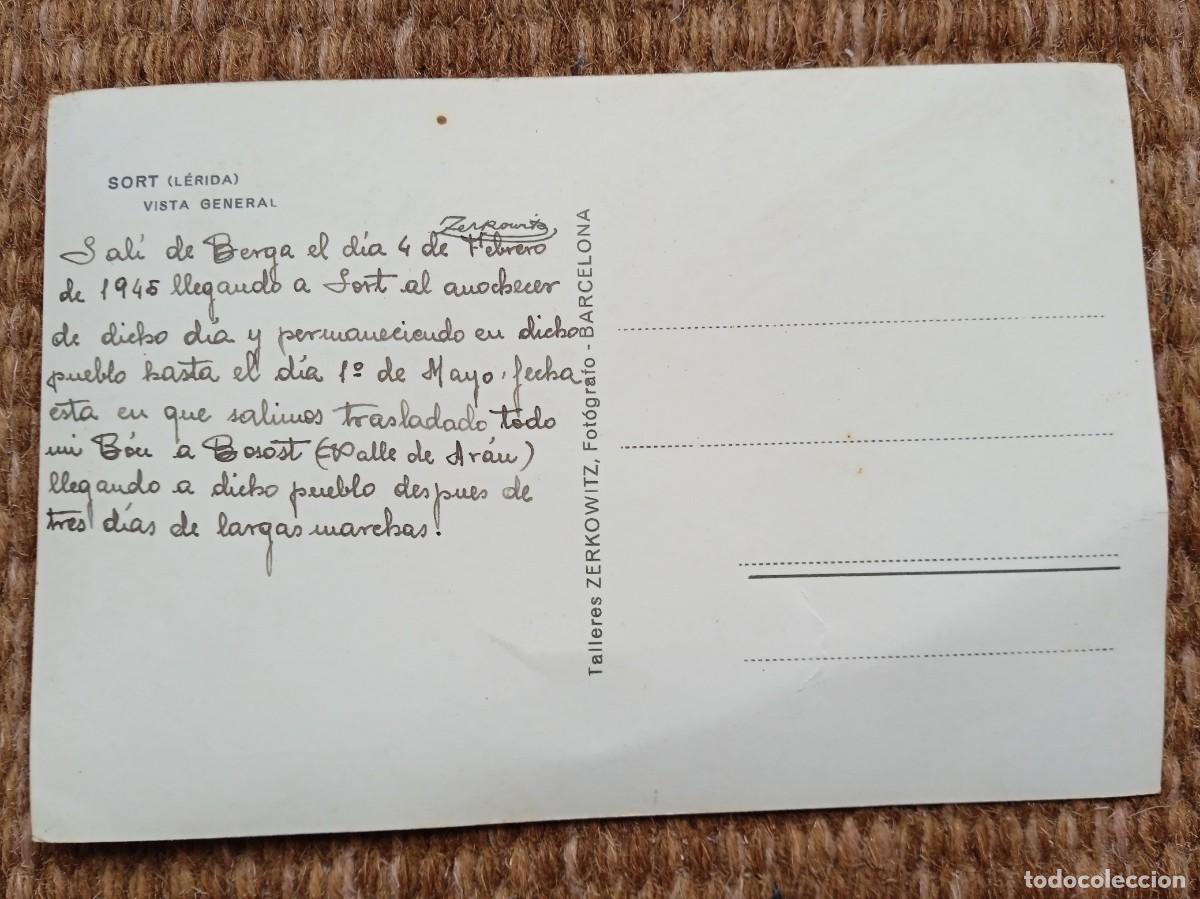 SORT (LÉRIDA)
VISTA GENERAL
Zerkowitz
Salí de Berga el día 4 de Febrero
de 1945 llegando a Sort al anochecer
de dicho día y permaneciendo en dicho
pueblo hasta el día 1º de Mayo, fecha
esta en que salimos trasladado todo
mi Bón a Bosost (Valle de Arán)
llegando a dicho pueblo despues de
tres días de largas marchas!
Talleres ZERKOWITZ, Fotógrafo - BARCELONA
todocoleccion